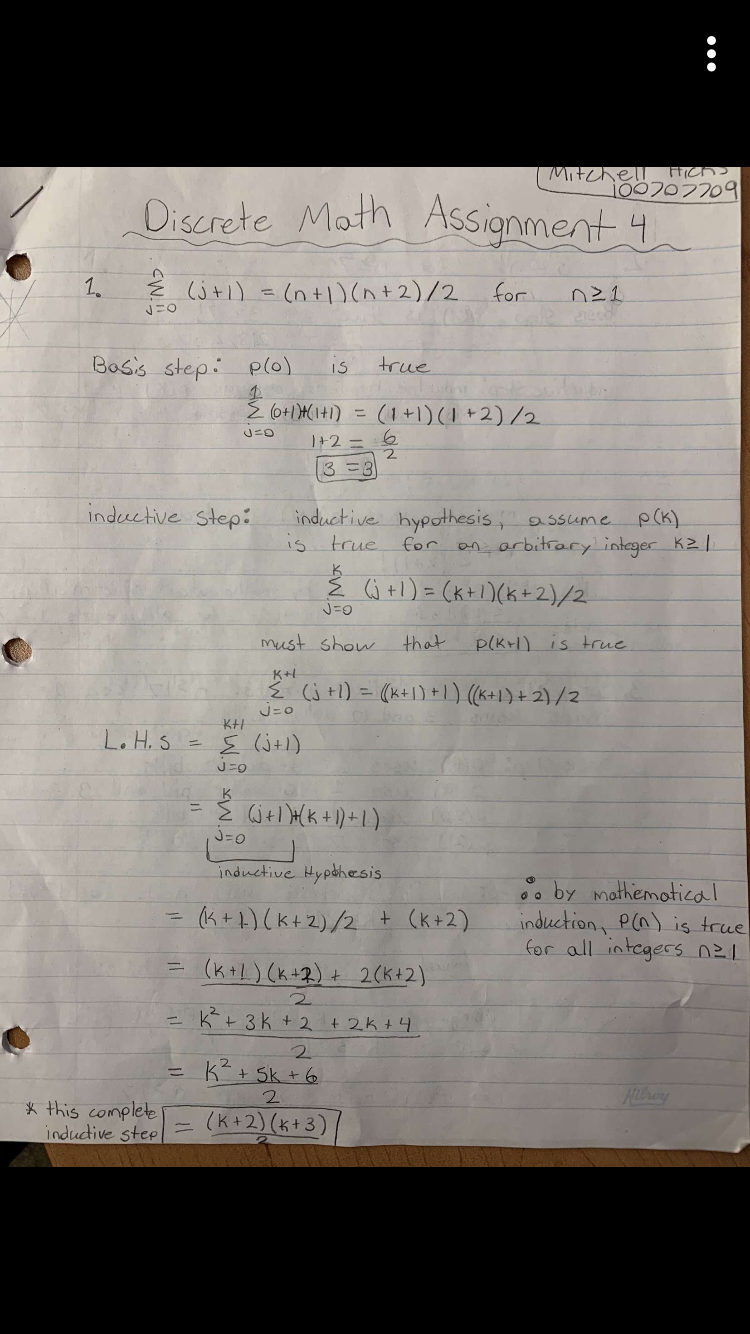 Mitchell Hicks
100707709
Discrete Math Assignment 4
1. n Σ j=0 (j+1) = (n+1)(n+2)/2 for n≥1
Basis step: p(0) is true
1 Σ j=0 (0+1)+(1+1) = (1+1)(1+2)/2
1+2 = 6/2
3 = 3
inductive step: inductive hypothesis, assume p(k)
is true for an arbitrary integer k≥1
k Σ j=0 (j+1) = (k+1)(k+2)/2
must show that p(k+1) is true
k+1 Σ j=0 (j+1) = ((k+1)+1) ((k+1)+2)/2
L.H.S = k+1 Σ j=0 (j+1)
= k Σ j=0 (j+1)+(k+1)+1)
inductive Hypothesis
= (k+1)(k+2)/2 + (k+2)
= (k+1)(k+2) + 2(k+2) / 2
= k² + 3k + 2 + 2k + 4 / 2
= k² + 5k + 6 / 2
* this complete
inductive step
= (k+2)(k+3) / 2
∴ by mathematical
induction, P(n) is true
for all integers n≥1
Hilroy